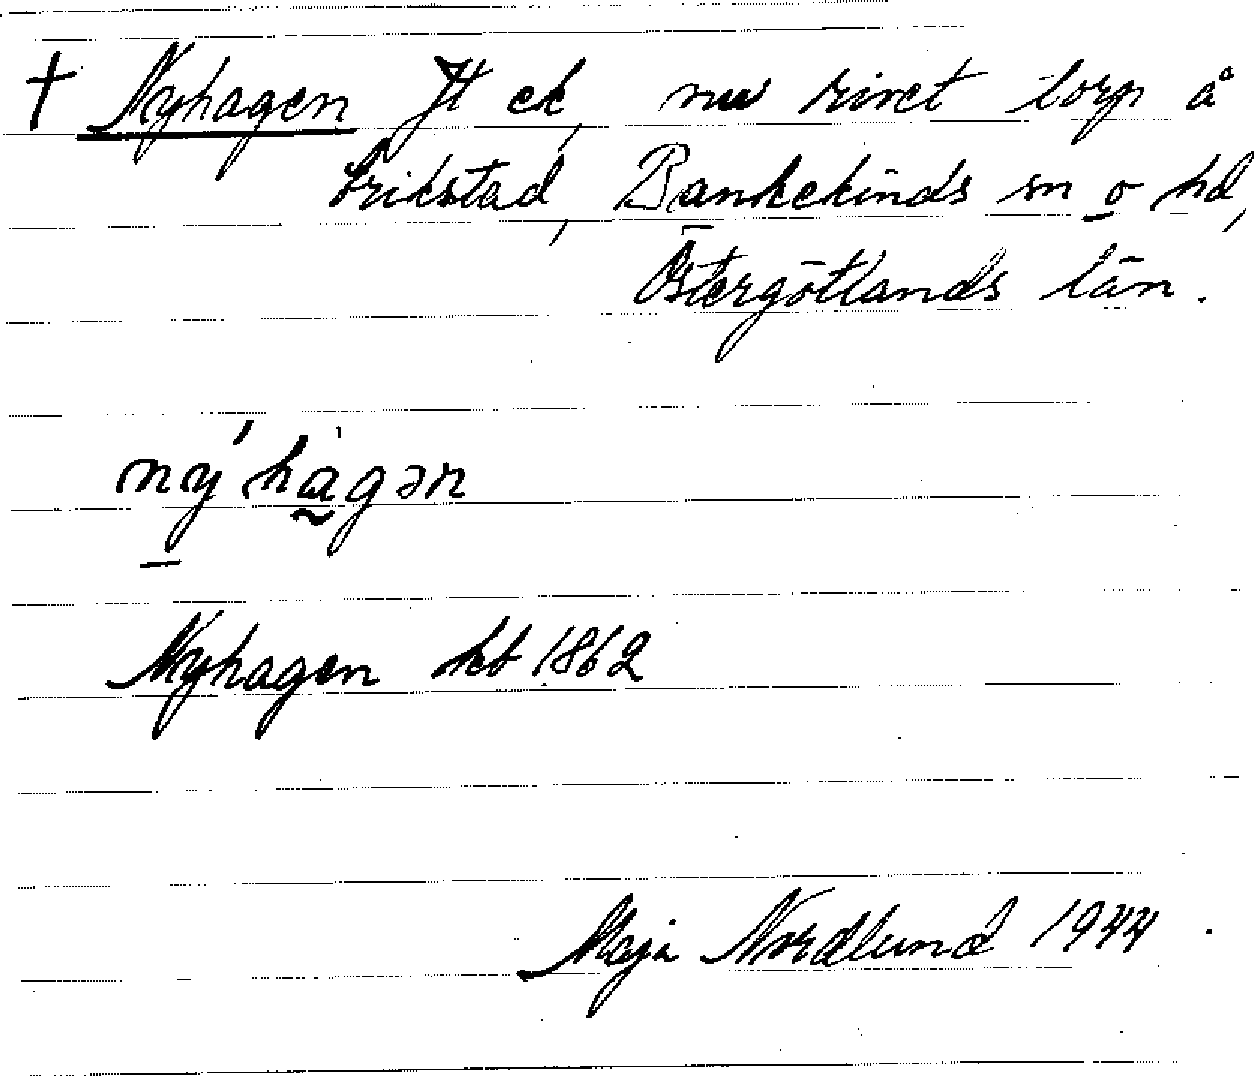 † Nyhagen Jt ek, nu rivet torp å
Brikstad, Bankekinds sn o hd,
Östergötlands län.
nýhàgən
Nyhagen hkt 1862
Maja Nordlund 1944